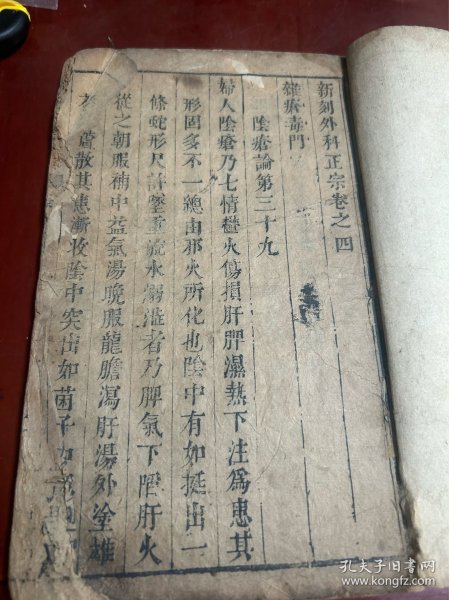 新刻外科正宗卷之四
雜瘡毒門
陰瘡論第三十九
婦人陰瘡乃七情鬱火傷損肝脾濕熱下注爲患其
形固多不一總由邪火所化也陰中有如挺出一
條蛇形尺許墜重流水溺澁者乃脾氣下陷肝火
從之朝服補中益氣湯晚服龍膽瀉肝湯外塗雄
蘆散其患漸收陰中突出如菌子如
孔夫子旧书网
www.kongfz.com